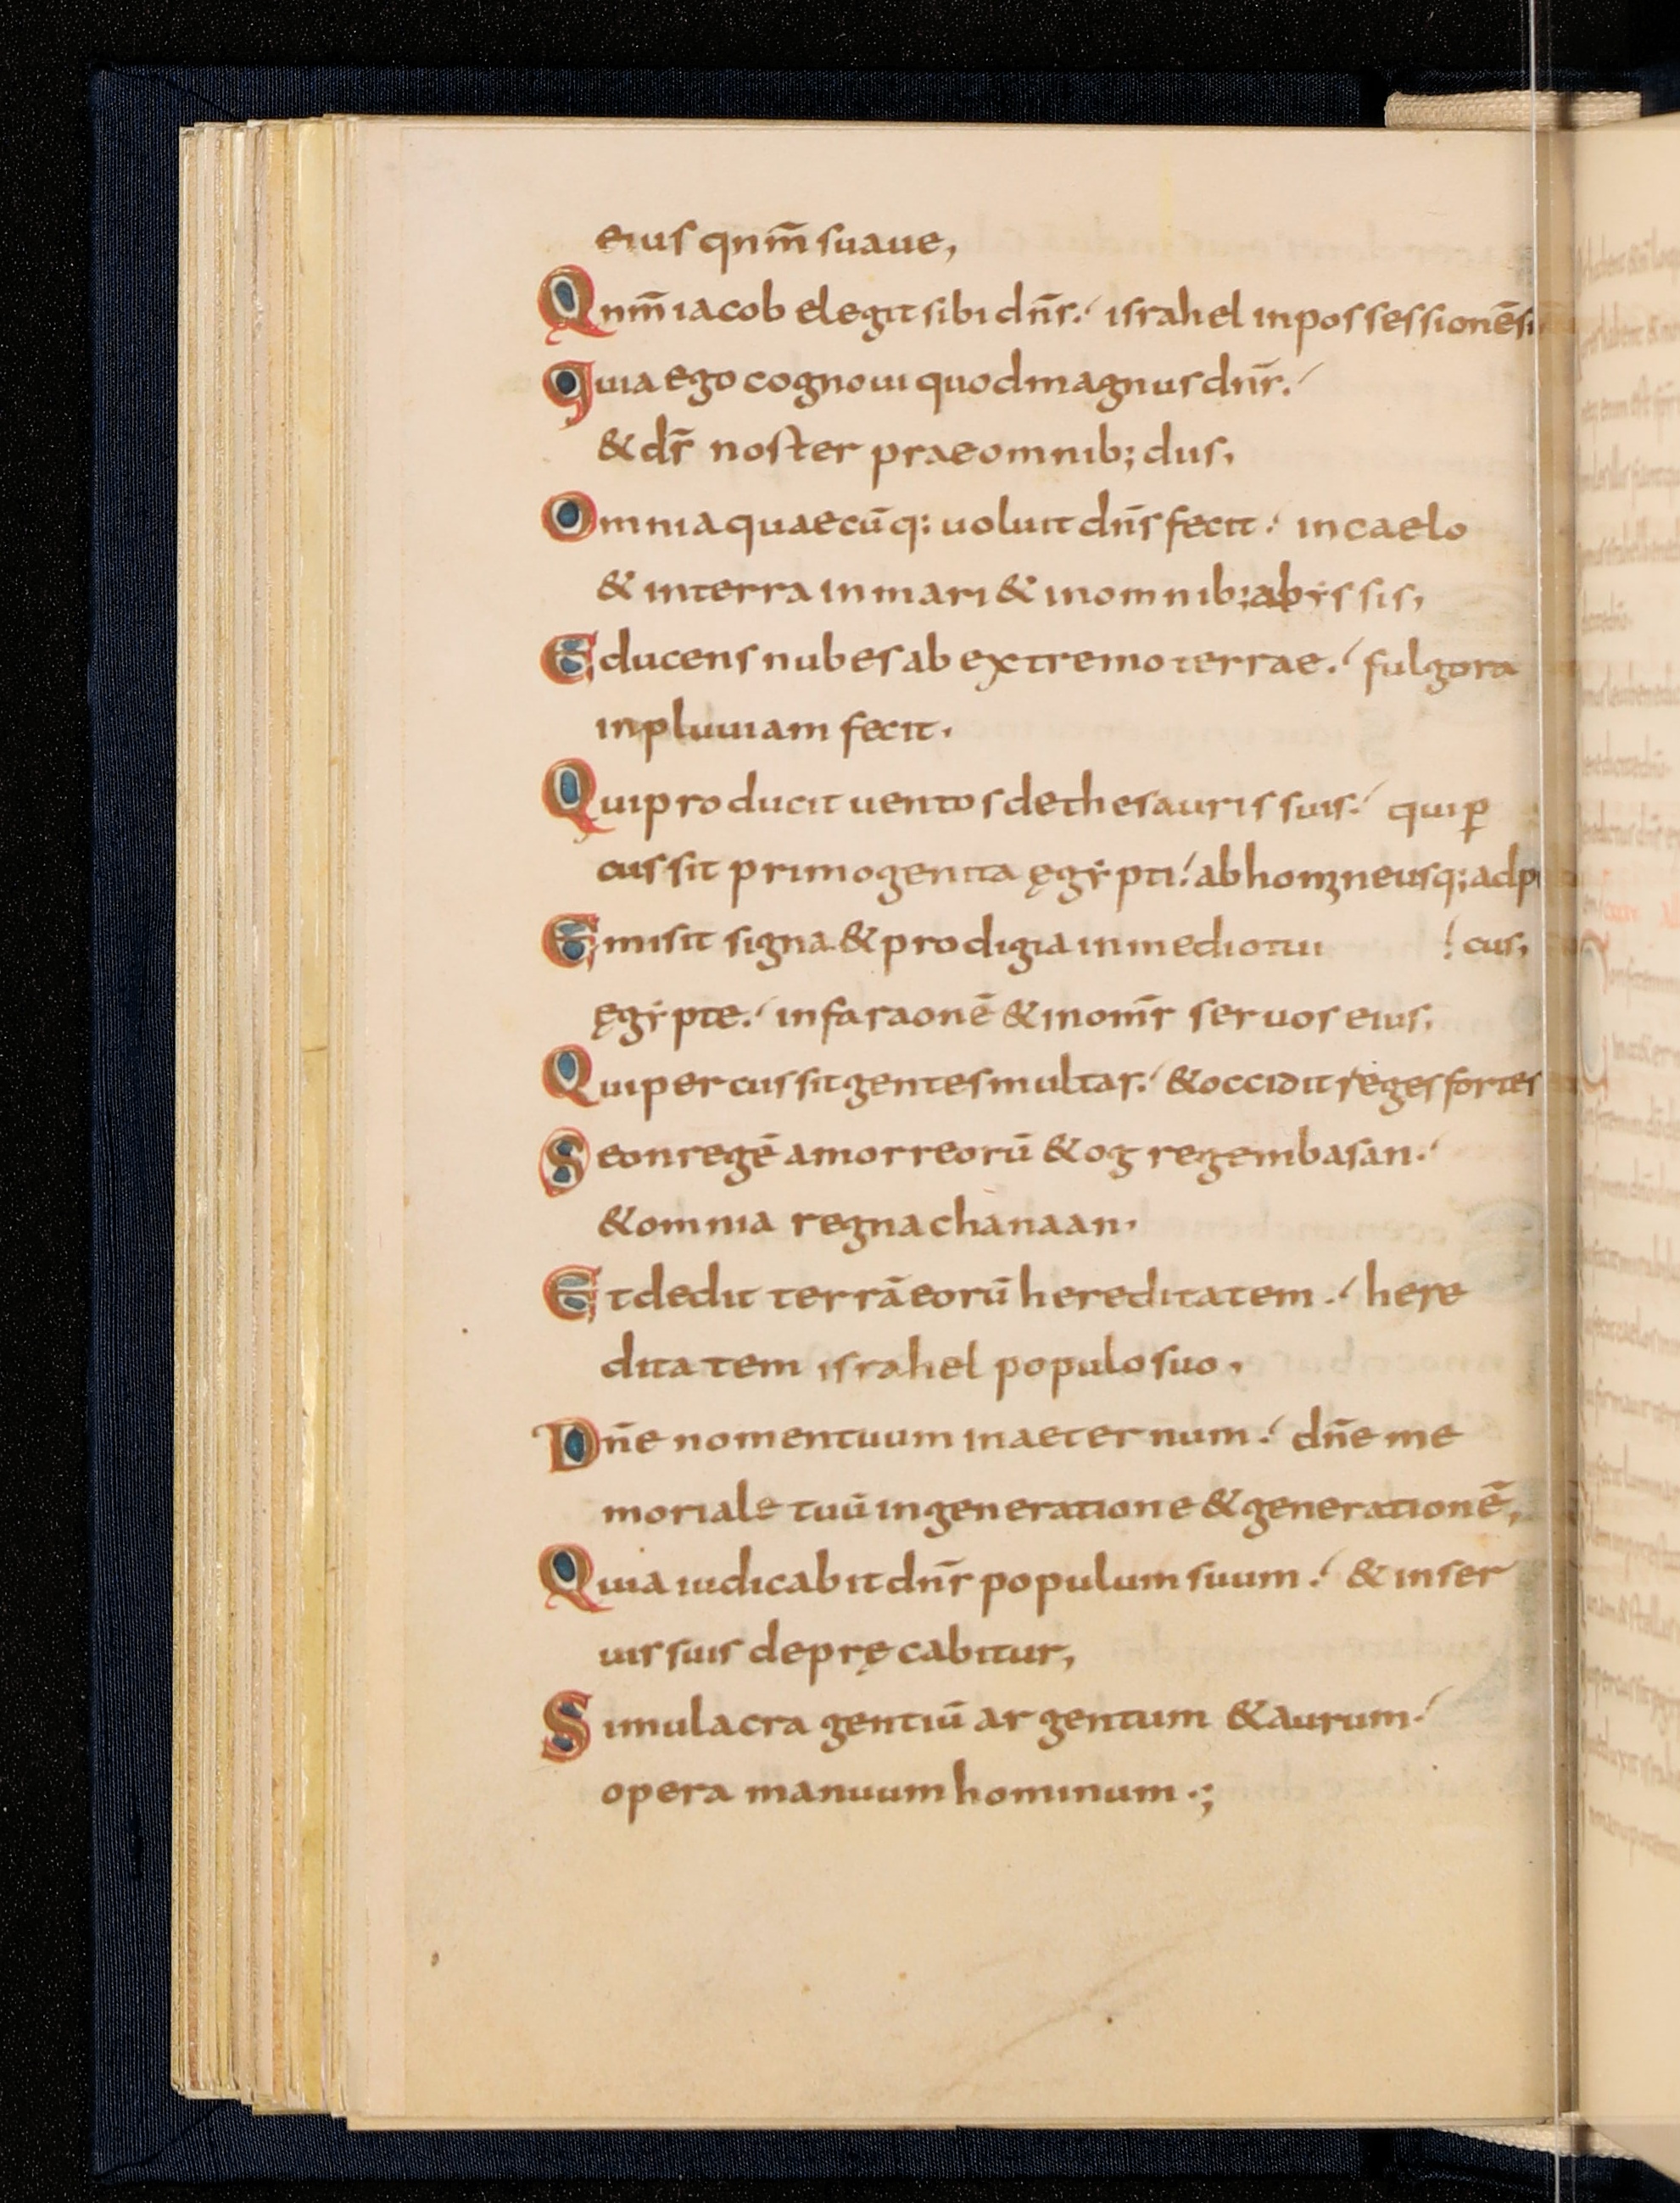 eius qnm̄ suaue,
Qnm̄ iacob elegit sibi dn̄s. israhel in possessionē
quia ego cognoui quod magnus dn̄s.
& dr̄ noster prae omnib; dus,
Omnia quaecūq: uoluit dn̄s fecit. in caelo
& in terra in mari & in omnib; abyssis,
Educens nubes ab extremo terrae. fulgora
in pluuiam fecit.
Qui producit uentos de thesauris suis. qui ꝑ
cussit primogenita ęgẏpti. ab homine usq; ad
Emisit signa & prodigia in medio tui
cus,
ęgẏpte. in faraonē & in om̄s seruos eius,
Qui percussit gentes multas. & occidit reges fortes
Seon regē amorreorū & og regem basan.
& omnia regna chanaan.
Et dedit terrā eorū hereditatem. here
ditatem israhel populo suo.
Dn̄e nomen tuum in aeternum. dn̄e me
moriale tuū in generatione & generationē,
Quia iudicabit dn̄s populum suum. & in ser
uis suis depręcabitur,
Simulacra gentiū argentum & aurum.
opera manuum hominum.;